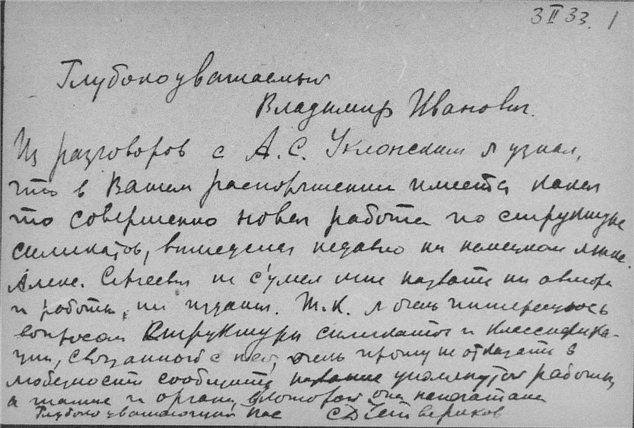 3 II 33. 1
Глубокоуважаемый
Владимир Иванович.
Из разговоров с А. С. Уклонским я узнал,
что в Вашем распоряжении имеется какая
то совершенно новая работа по структуре
силикатов, вышедшая недавно на немецком языке.
Алекс. Сергеевич не сумел мне назвать ни автора
и работы, ни издания. Т.К. я очень интересуюсь
вопросом структуры силикатов и классифика-
ции, связанного с ней, очень прошу не отказать в
любезности сообщить название упомянутой работы,
а также и орган, в котором она напечатана
Глубоко уважающий Вас СДЧетвериков